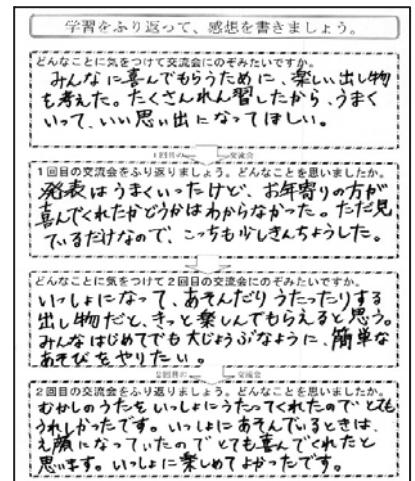 学習をふり返って、感想を書きましょう。
どんなことに気をつけて交流会にのぞみたいですか。
みんなに喜んでもらうために、楽しい出し物
を考えた。たくさんれん習したから、うまく
いって、いい思い出になってほしい。
1回目の 交流会
1回目の交流会をふり返りましょう。どんなことを思いましたか。
発表はうまくいったけど、お年寄りの方が
喜んでくれたかどうかはわからなかった。ただ見
ているだけなので、こっちも少しきんちょうした。
どんなことに気をつけて2回目の交流会にのぞみたいですか。
いっしょになって、あそんだりうたったりする
出し物だと、きっと楽しんでもらえると思う。
みんなはじめてでも大じょうぶなように、簡単な
あそびをやりたい。
2回目の 交流会
2回目の交流会をふり返りましょう。どんなことを思いましたか。
むかしのうたをいっしょにうたってくれたのでとても
うれしかったです。いっしょにあそんでいるときは、
え顔になっていたのでとても喜んでくれたと
思います。いっしょに楽しめてよかったです。